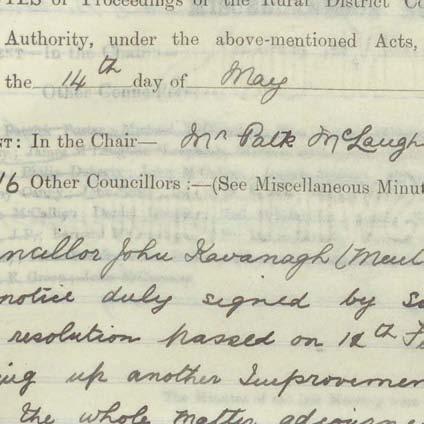 TES of Proceedings of the Rural District Co
Authority, under the above-mentioned Acts,
the 14th day of May
NT: In the Chair— Mr Patk McLaugh
16 Other Councillors :—(See Miscellaneous Minut
ncillor John Kavanagh (Meul
notice duly signed by
resolution passed on 12th F
ing up another Improvemen
The whole matter adjourne